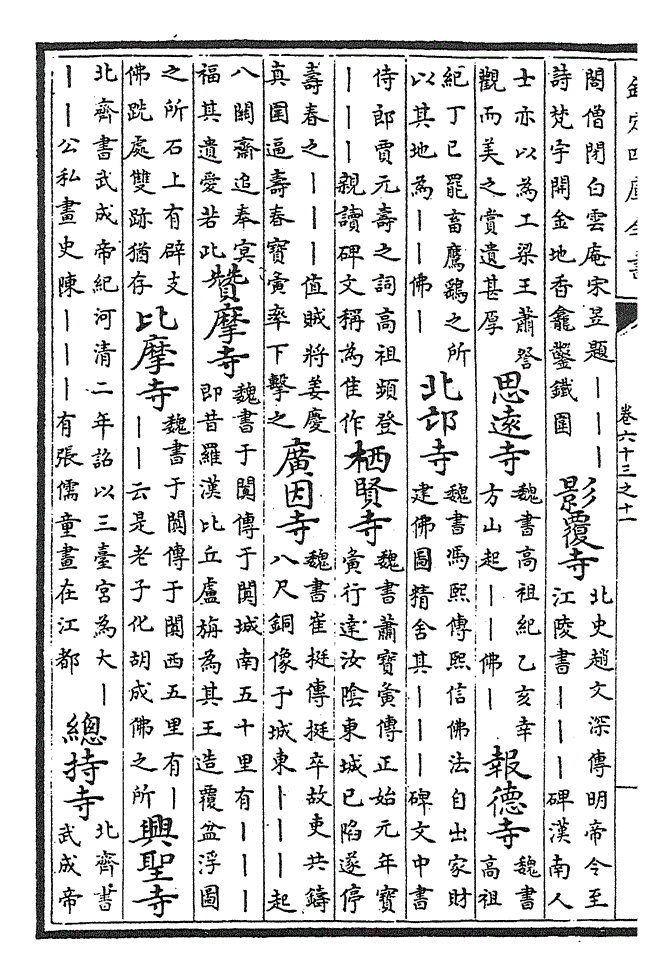 欽定四庫全書
卷六十三之十一
閣僧閉白雲庵宋昱題｜｜｜
詩梵宇開金地香龕鑿鐵圍
影覆寺
北史趙文深傳明帝令至
江陵書｜｜｜碑漢南人
士亦以為工梁王蕭詧
觀而美之賞遺甚厚
思遠寺
魏書高祖紀乙亥幸
方山起｜｜佛｜
報德寺
魏書
高祖
紀丁巳罷畜鷹鷂之所
以其地為｜｜佛｜
北邙寺
魏書馮熙傳熙信佛法自出家財
建佛圖精舍其｜｜｜碑文中書
侍郎賈元壽之詞高祖頻登
｜｜｜親讀碑文稱為佳作
栖賢寺
魏書蕭寶夤傳正始元年寶
夤行達汝陰東城已陷遂停
壽春之｜｜｜值賊將姜慶
真圍逼壽春寶夤率下擊之
廣因寺
魏書崔挺傳挺卒故吏共鑄
八尺銅像于城東｜｜｜起
八關齋追奉冥
福其遺愛若此
贊摩寺
魏書于闐傳于闐城南五十里有｜｜｜
即昔羅漢比丘盧旃為其王造覆盆浮圖
之所石上有辟支
佛跣處雙跡猶存
比摩寺
魏書于闐傳于闐西五里有｜
｜｜云是老子化胡成佛之所
興聖寺
北齊書武成帝紀河清二年詔以三臺宮為大｜
｜｜公私畫史陳｜｜｜有張儒童畫在江都
總持寺
北齊書
武成帝